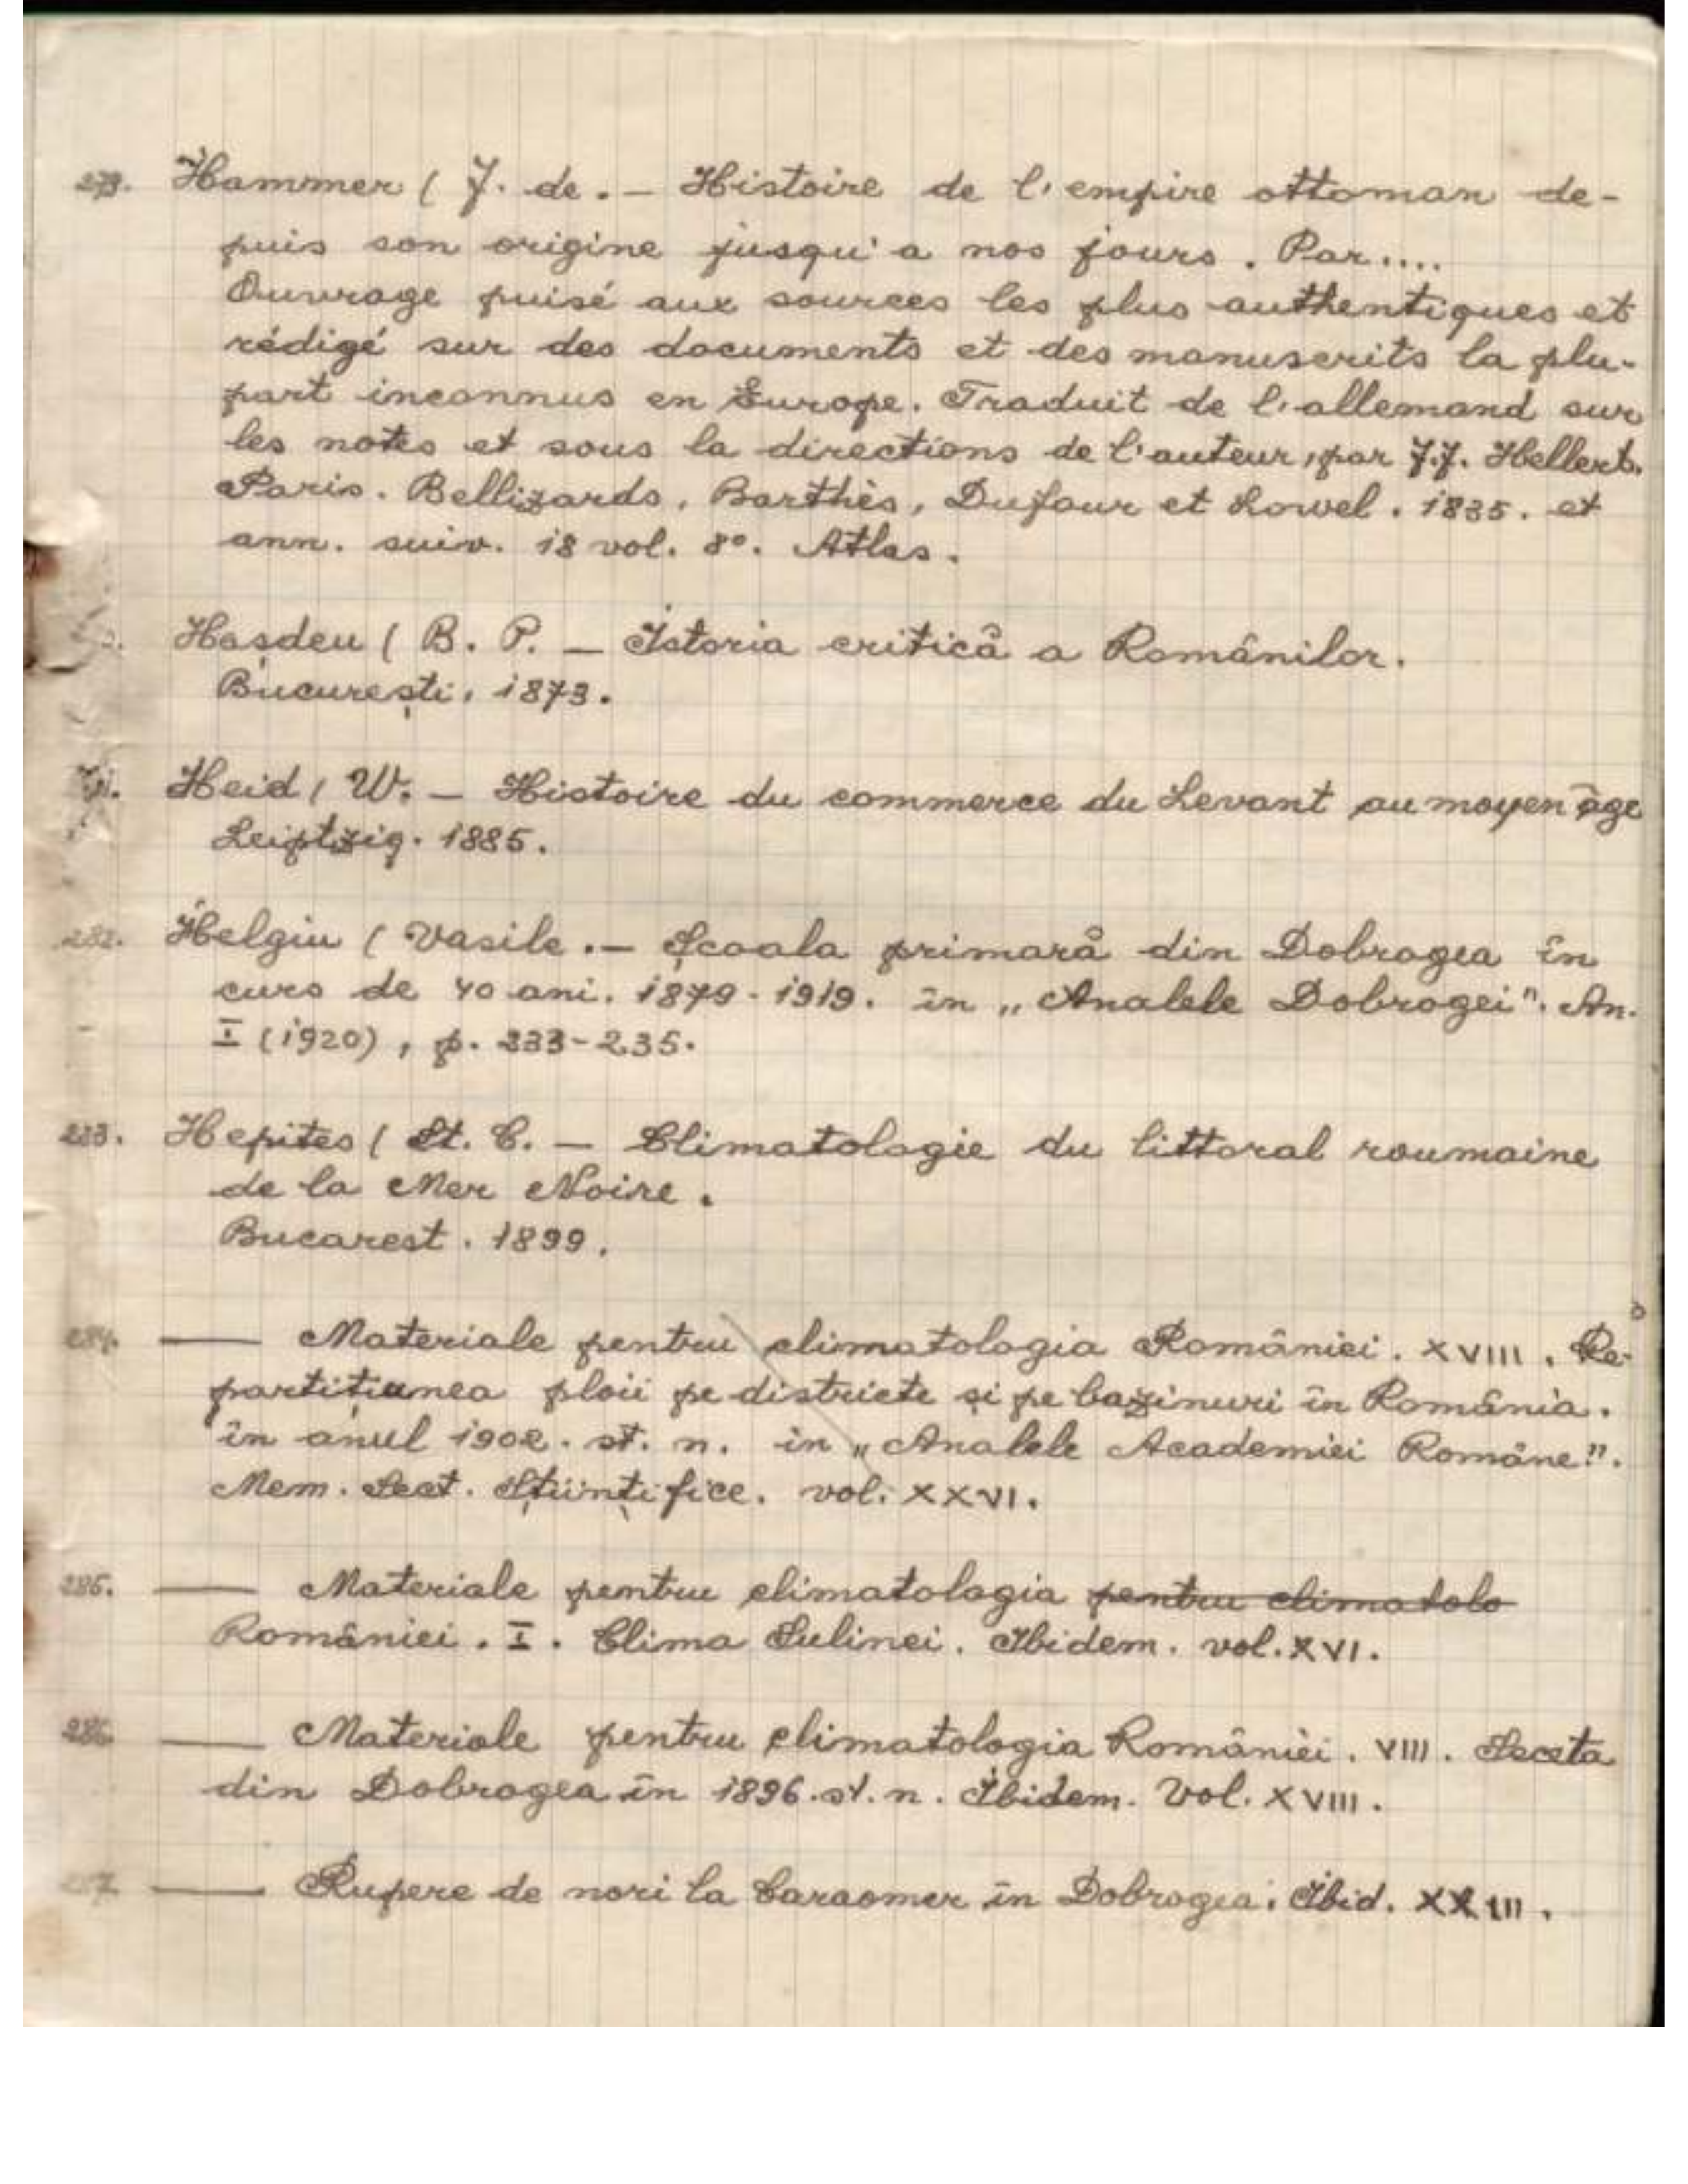 279. Hammer ( J. de. — Histoire de l'empire ottoman de-
puis son origine jusqu'a nos jours. Par....
Ouvrage puisé aux sources les plus authentiques et
rédigé sur des documents et des manuscrits la plu-
part inconnus en Europe. Traduit de l'allemand sur
les notes et sous la directions de l'auteur, par J.J. Hellert.
Paris. Bellizards, Barthès, Dufour et Lowel. 1835. et
ann. suiv. 18 vol. 8°. Atlas.
Hașdeu ( B. P. — Istoria critică a Românilor.
București, 1873.
Heid, W. — Histoire du commerce du Levant au moyen âge
Leiptzig. 1885.
282. Helgiu ( Vasile. — Școala primară din Dobrogea în
curs de 40 ani. 1879-1919. în „Analele Dobrogei". An.
I (1920), p. 233-235.
283. Hepites ( St. C. — Climatologie du littoral roumaine
de la Mer Noire.
Bucarest. 1899.
284. — Materiale pentru climatologia României. XVIII. Re-
partițiunea ploii pe districte și pe bazinuri în România.
în anul 1902. st. n. în „Analele Academiei Române".
Mem. Sect. Științifice. vol. XXVI.
285. — Materiale pentru climatologia pentru climatolo
României. I. Clima Sulinei. Ibidem. vol. XVI.
286. — Materiale pentru climatologia României. VIII. Seceta
din Dobrogea în 1896. st. n. Ibidem. Vol. XVIII.
287. — Rupere de nori la Caraomer în Dobrogea. Ibid. XXIII.